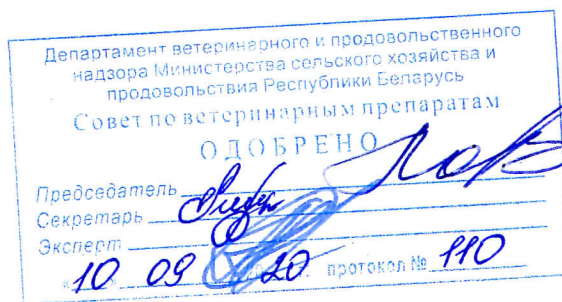 Департамент ветеринарного и продовольственного
надзора Министерства сельского хозяйства и
продовольствия Республики Беларусь
Совет по ветеринарным препаратам
ОДОБРЕНО
Председатель
Секретарь
Эксперт
«10 09 20 протокол № 110